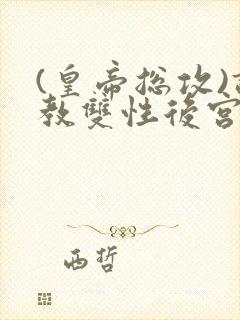 (皇帝总攻)
教雙性後宮
西哲